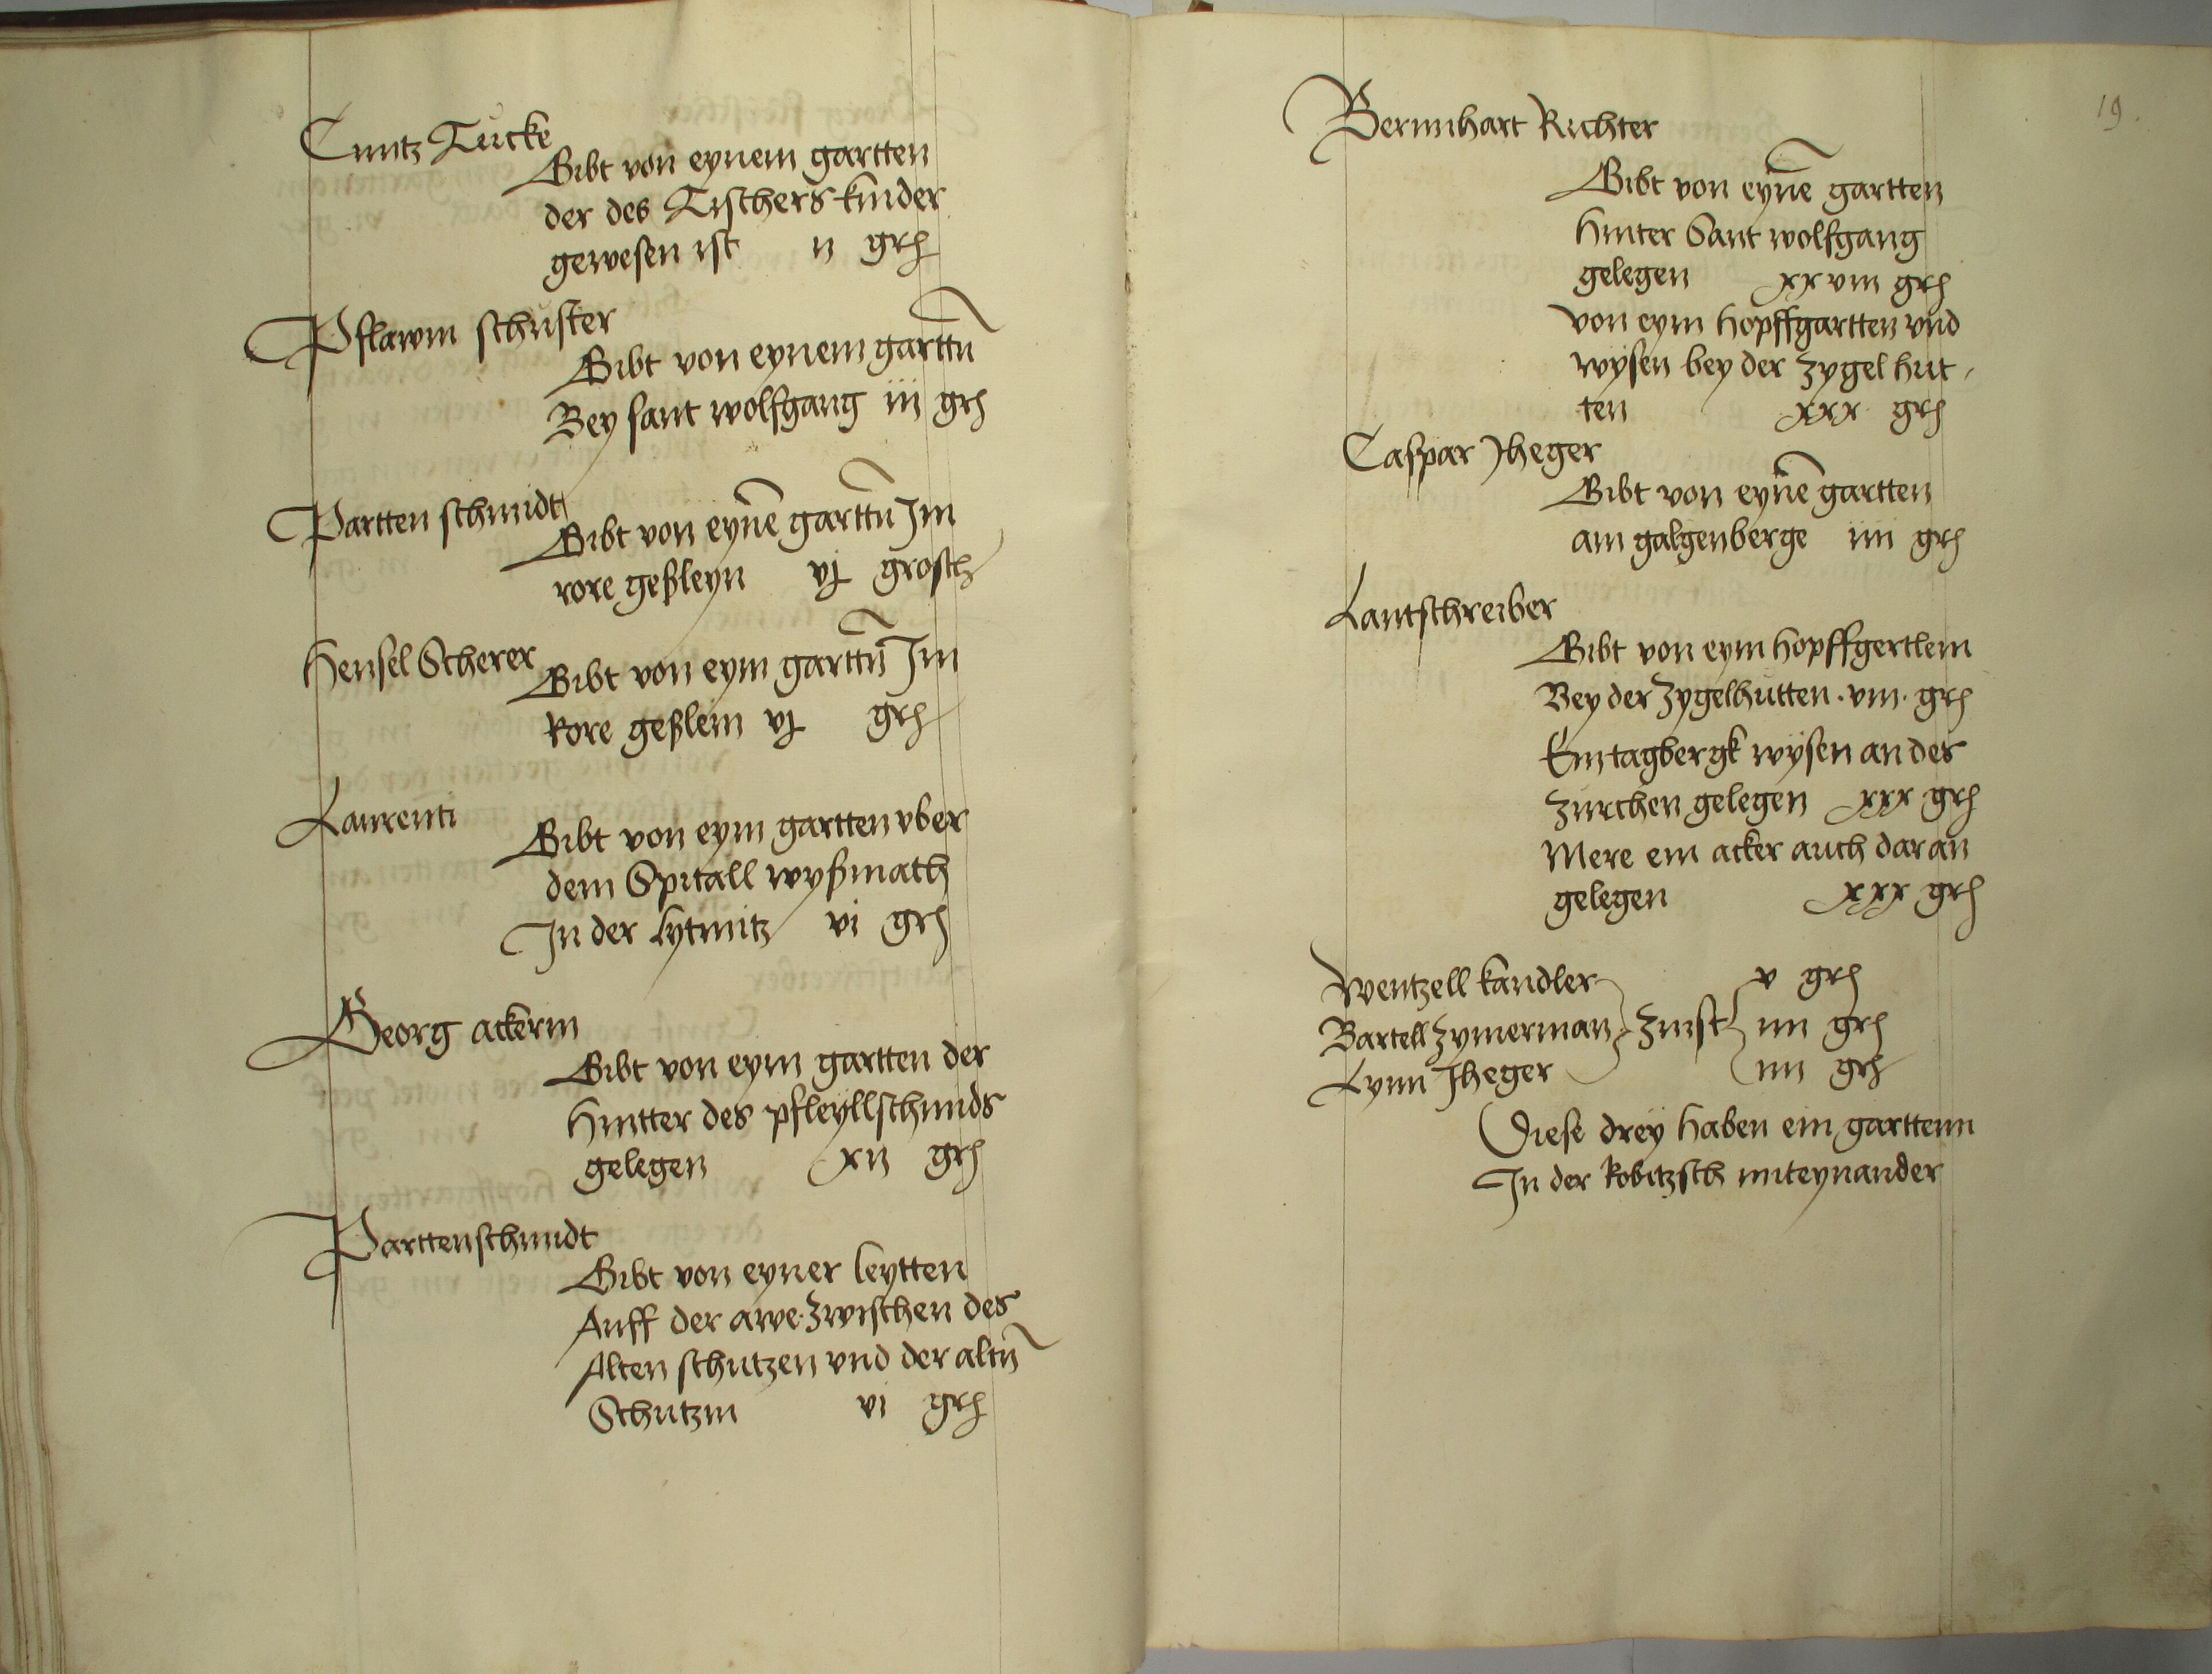 Cuntz Tucke
Gibt von eynem gartten
der des Tischers kinder
gewesen ist ii grh
Pflawm schuster
Gibt von eynem garttn
Bey sant wolfgang iii grh
Partten schmidt
Gibt von eyne garttn Im
rore geßleyn vj grosch
Hensel Scherer
Gibt von eym garttn Im
Rore geßlein vj grh
Laurenti
Gibt von eym gartten vber
dem Spitall wyßmath
In der Lytmitz vi grh
Georg ackerm
Gibt von eym gartten der
hintter des pfleyllschmids
gelegen xii grh
Parttenschmidt
Gibt von eyner leytten
Auff der awe zwischen des
Alten schutzen vnd der altn
Schutzin vi grh
19.
Bernnhart Richter
Gibt von eyne gartten
hinter Sant wolfgang
gelegen xxviii grh
von eym hopffgartten vnd
wysen bey der zygel hut-
ten xxx grh
Caspar Jheger
Gibt von eyne gartten
am galgenberge iiii grh
Lantschreiber
Gibt von eym hopffgertlein
Bey der zygelhutten . viii . grh
Ein tagbergk wysen an der
zurchen gelegen xxx grh
Mere ein acker auch daran
gelegen xxx grh
Wentzell kandler v grh
Bartell zymerman zinst iiii grh
Lynn Jheger iiii grh
Diese drey haben ein garttenn
In der kobitzsch miteynander